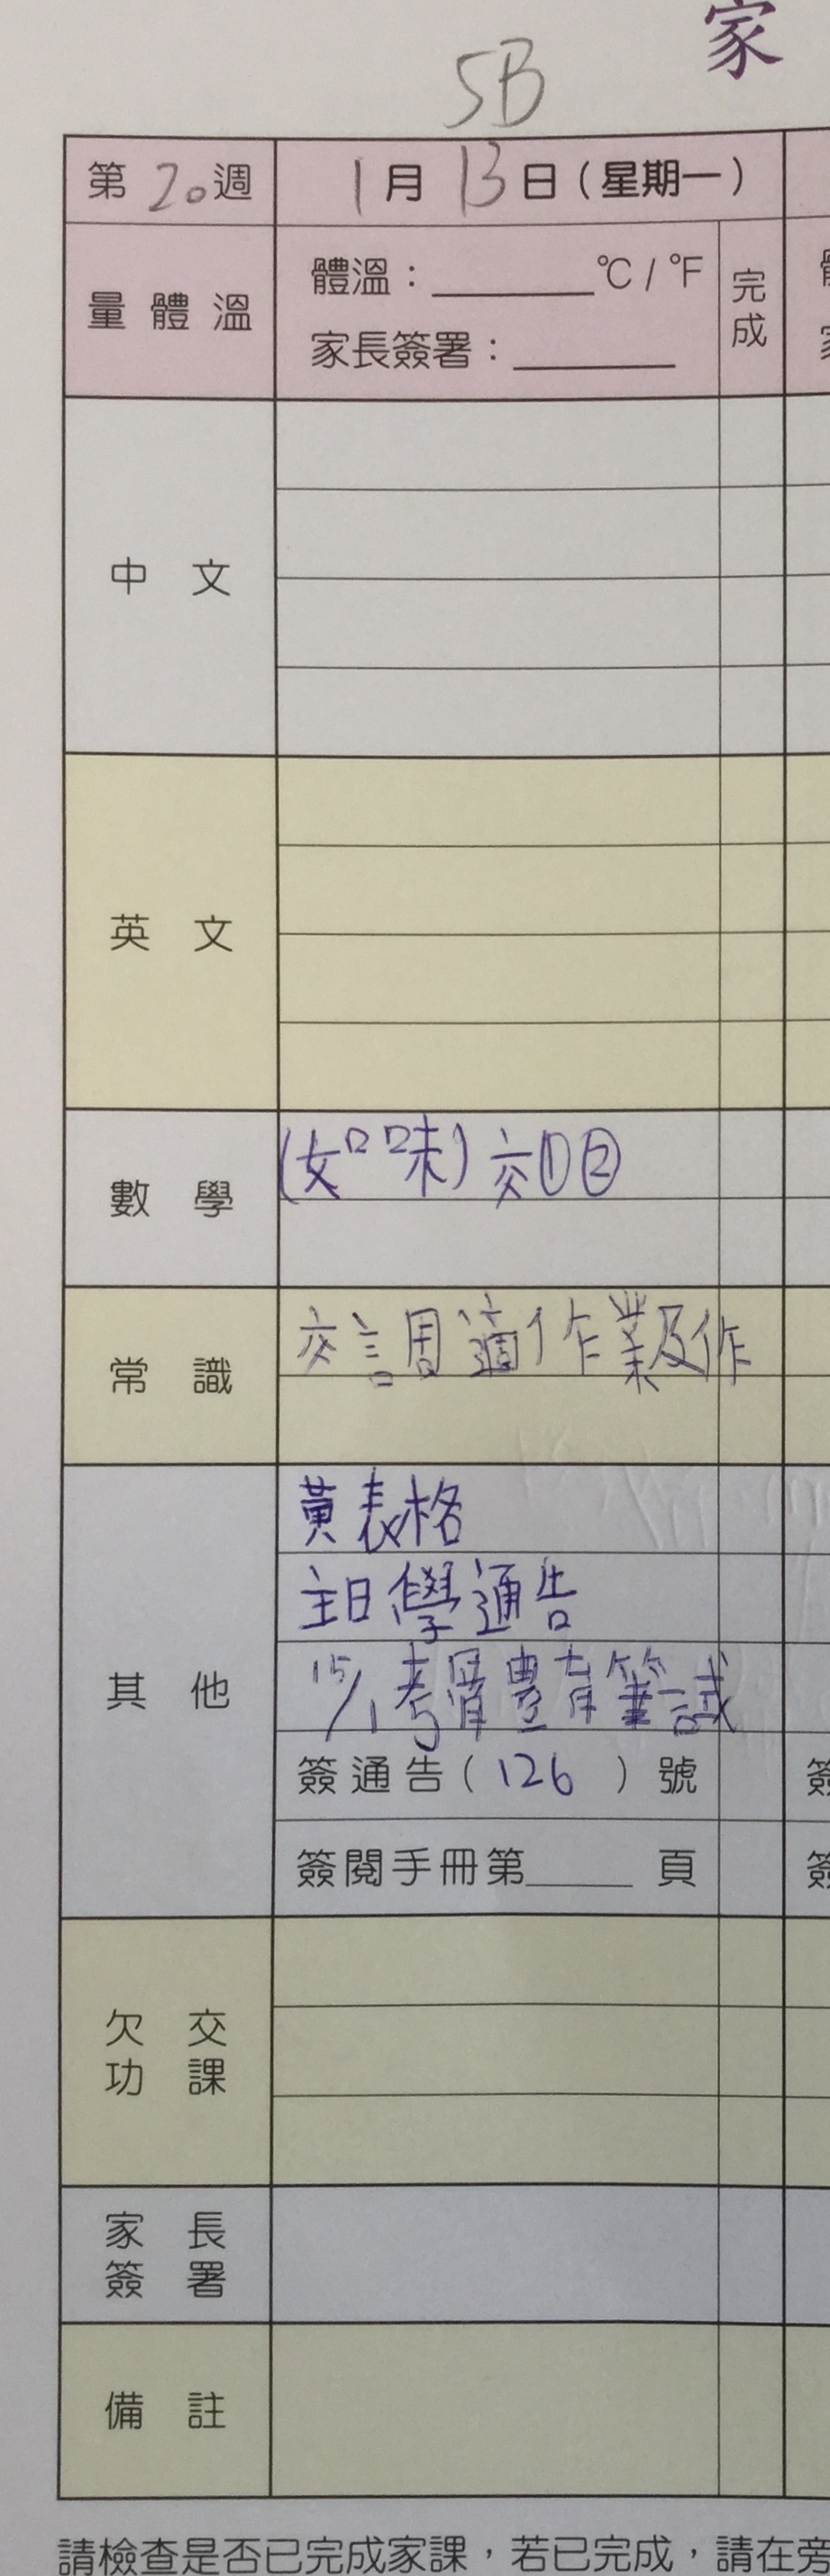 家
5B
第20週
1月13日(星期一)
量體溫
體溫：______℃/℉
家長簽署：______
完成
中文
英文
數學
(如味)交①②
常識
交調適作業及作
其他
黃表格
主日學通告
15/1考體育筆試
簽通告(126)號
簽閱手冊第____頁
欠交功課
家長簽署
備註
請檢查是否已完成家課，若已完成，請在旁